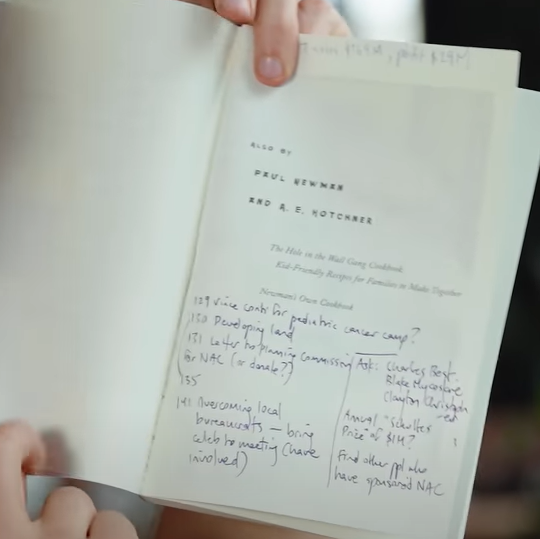 ALSO BY
PAUL NEWMAN
AND A. E. HOTCHNER
The Hole in the Wall Gang Cookbook
Kid-Friendly Recipes for Families to Make Together
Newman's Own Cookbook
129 since conts for pediatric cancer camp?
130 Developing land
131 Letter to Planning Commission
for NAC (or donate?)
135
141 Overcoming local
bureaucrats — bring
celeb to meeting (have
involved)
Ask: Charles Best
Blake Mycoskie
Clayton Christensen
Annual "Schultes
Prize" of $1M?
Find other ppl who
have sponsored NAC